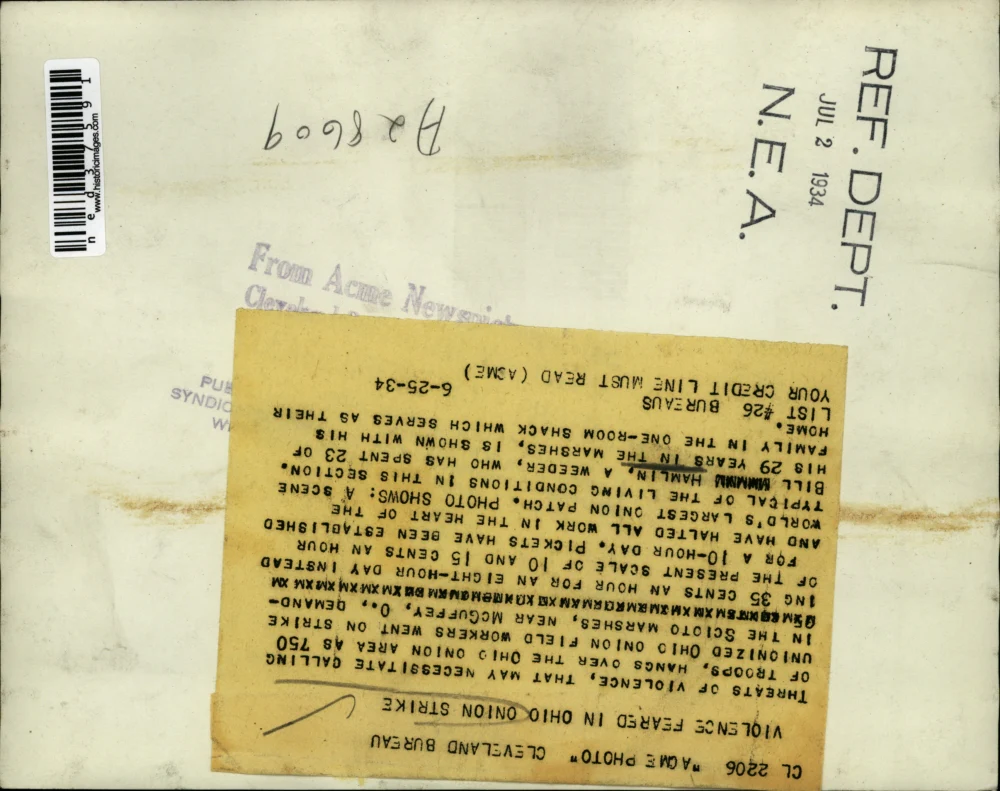 REF. DEPT.
JUL 2 1934
N. E. A.
A28609
www.historicimages.com
From Acme
PUB
SYNDIC
CL 2206 "ACME PHOTO" CLEVELAND BUREAU
VIOLENCE FEARED IN OHIO ONION STRIKE
THREATS OF VIOLENCE, THAT MAY NECESSITATE CALLING
OF TROOPS, HANGS OVER THE OHIO ONION AREA AS 750
UNIONIZED OHIO ONION FIELD WORKERS WENT ON STRIKE
IN THE SCIOTO MARSHES, NEAR MCGUFFEY, O., DEMAND-
ING 35 CENTS AN HOUR FOR AN EIGHT-HOUR DAY INSTEAD
OF THE PRESENT SCALE OF 10 AND 15 CENTS AN HOUR
FOR A 10-HOUR DAY. PICKETS HAVE BEEN ESTABLISHED
AND HAVE HALTED ALL WORK IN THE HEART OF THE
WORLD'S LARGEST ONION PATCH. PHOTO SHOWS: A SCENE
TYPICAL OF THE LIVING CONDITIONS IN THIS SECTION.
BILL HAMLIN, A WEEDER, WHO HAS SPENT 23 OF
HIS 29 YEARS IN THE MARSHES, IS SHOWN WITH HIS
FAMILY IN THE ONE-ROOM SHACK WHICH SERVES AS THEIR
HOME.
LIST #26 BUREAUS 6-25-34
YOUR CREDIT LINE MUST READ (ACME)